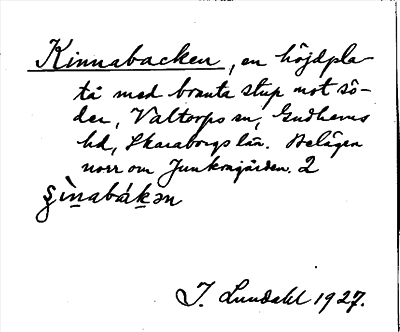 Kinnabacken, en höjdpla-
tå med branta stup mot sö-
der, Valtorps sn, Gudhems
hd, Skaraborgs län. Belägen
norr om Junkragården. 2
ʂìnabákən
I. Lundahl 1927.